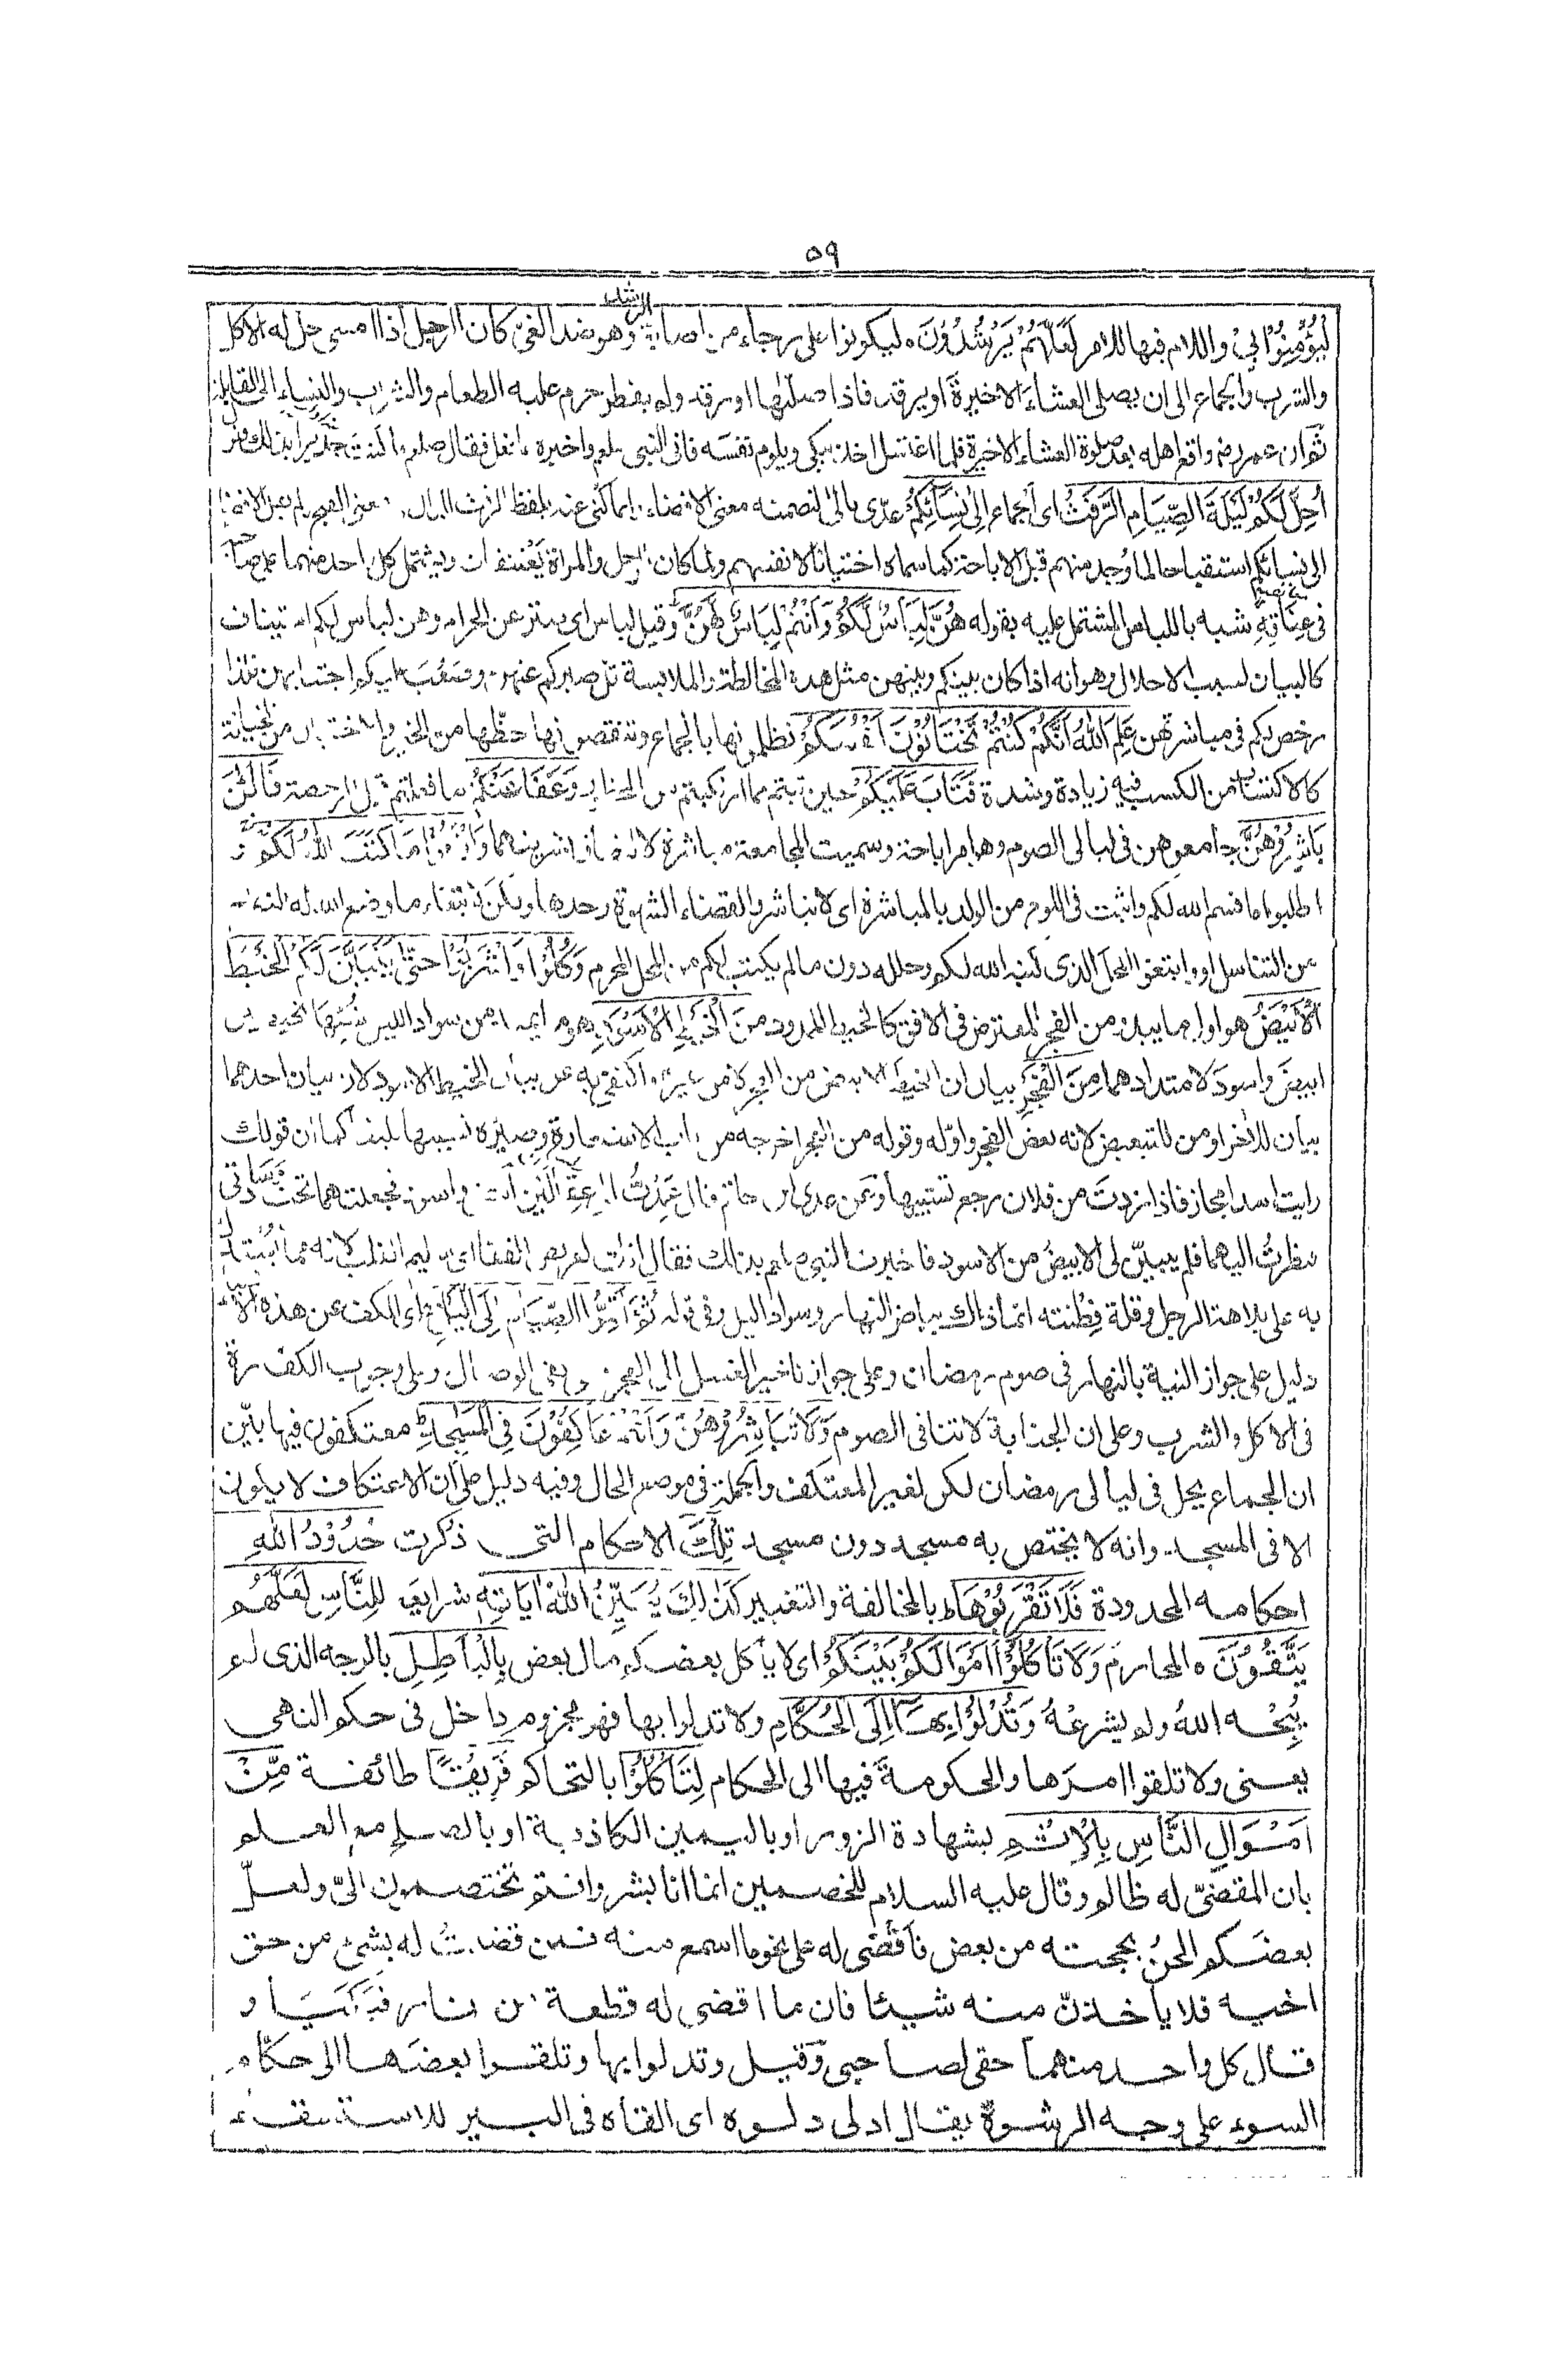 ٥٩
لْيُؤْمِنُوْا بِيْ واللام فيهما للامر لَعَلَّهُمْ يَرْشُدُوْنَ ه ليكونوا على رجاء من اصابة الرشد وهو ضد الغىّ كان الرجل اذا امسى حل له الاكل
والشرب والجماع الى ان يصلى العشاء الاخيرة او يرقد فاذا صلّٰها او رقد ولم يفطر حرم عليه الطعام والشراب والنساء الى القابلة
ثم ان عمر رضه واقع اهله بعد صلوة العشاء الاخيرة فلما اغتسل اخذ يبكى ويلوم نفسه فاتى النبى صلعم واخبره ما فعل فقال صلعم ما كنت جديرا بذلك فنزل
اُحِلَّ لَكُمْ لَيْلَةَ الصِّيَامِ الرَّفَثُ اى الجماع اِلٰى نِسَآئِكُمْ عدّى بالىٰ لتضمنه معنى الافضاء وانما كنّى عنه بلفظ الرفث الدال على معنى القبح ولم يقل الافضاء
الى نسائكم استقباحا لما وُجد منهم قبل الاباحة كما سماه اختيانا لانفسهم ولما كان الرجل والمراة يَعْتنقان ويشتمل كل واحد منهما على صاحبه
فى عِنَاقِهِ شبه باللباس المشتمل عليه بقوله هُنَّ لِبَاسٌ لَّكُمْ وَاَنْتُمْ لِبَاسٌ لَّهُنَّ وقيل لباس اى ستر عن الحرام وهن لباس لكم استيناف
كالبيان لسبب الاحلال وهو انه اذا كان بينكم وبينهن مثل هذه المخالطة والملابسة قل صبركم عنهن وصَعُبَ عليكم اجتنابهن فلذا
رخص لكم فى مباشرتهن عَلِمَ اللّٰهُ اَنَّكُمْ كُنْتُمْ تَخْتَانُوْنَ اَنْفُسَكُمْ تظلمونها بالجماع وتنقصونها حظّها من الخير والاختيان من الخيانة
كالاكتساب من الكسب فيه زيادة وشدة فَتَابَ عَلَيْكُمْ حين تبتم مما ارتكبتم من المحظور وَعَفَا عَنْكُمْ ما فعلتم قبل الرخصة فَالْئٰنَ
بَاشِرُوْهُنَّ جامعوهن فى ليالى الصوم وهو امر اباحة وسميت المجامعة مباشرة لالتصاق بشرتيهما وَابْتَغُوْا مَا كَتَبَ اللّٰهُ لَكُمْ
اطلبوا ما قسم الله لكم واثبت فى اللوح من الولد بالمباشرة اى لا تباشروا لقضاء الشهوة وحدها ولكن لابتغاء ما وضع الله له النكاح
من التناسل او وابتغوا المحل الذى كتبه الله لكم وحلله دون ما لم يكتب لكم من المحل المحرم وَكُلُوْا وَاشْرَبُوْا حَتّٰى يَتَبَيَّنَ لَكُمُ الْخَيْطُ
الْاَبْيَضُ هو اول ما يبدو من الفجر المعترض فى الافق كالخيط الممدود مِنَ الْخَيْطِ الْاَسْوَدِ وهو ما يمتد من سواد الليل شُبّها بخيطين
ابيضَ واسودَ لامتدادهما مِنَ الْفَجْرِ بيان ان الخيط الابيض من الفجر لا من غيره واكتفى به عن بيان الخيط الاسود لان بيان احدهما
بيان للاٰخر او من للتبعيض لانه بعض الفجر واوّله وقوله من الفجر اخرجه من باب الاستعارة وصيّره تشبيها بليغا كما ان قولك
رايت اسدا مجاز فاذا زدتَ من فلان رجع تشبيها وعن عدى ابن حاتم قال عَمِدْتُ الى عِقَالَيْنِ ابيض واسود فجعلتهما تحت وسادتى
نظرتُ اليهما فلم يتبيّن لى الابيضُ من الاسود فاخبرت النبى صلعم بذلك فقال انك لعريض القفا اى سليم القلب لانه مما يُستدلّ
به على بلاهة الرجل وقلة فِطْنته انما ذاك بياض النهار وسواد اليل وفى قوله ثُمَّ اَتِمُّوا الصِّيَامَ اِلَى الَّيْلِ اى الكف عن هذه الاشياء
دليل على جواز النية بالنهار فى صوم رمضان وعلى جواز تاخير الغسل الى الفجر وعلى نفى الوصال وعلى وجوب الكفارة
فى الاكل والشرب وعلى ان الجنابة لا تنافى الصوم وَلَا تُبَاشِرُوْهُنَّ وَاَنْتُمْ عَاكِفُوْنَ فِى الْمَسٰجِدِ معتكفون فيها بيّن
ان الجماع يحل فى ليالى رمضان لكن لغير المعتكف والجملة فى موضع الحال وفيه دليل على ان الاعتكاف لا يكون
الا فى المسجد وانه لا يختص به مسجد دون مسجد تِلْكَ الاحكام التى ذكرت حُدُوْدُ اللّٰهِ
احكامه المحدودة فَلَا تَقْرَبُوْهَا ط بالمخالفة والتغيير كَذٰلِكَ يُبَيِّنُ اللّٰهُ اٰيَاتِهٖ شرايعه لِلنَّاسِ لَعَلَّهُمْ
يَتَّقُوْنَ ه المحارم وَلَا تَأْكُلُوْۤا اَمْوَالَكُمْ بَيْنَكُمْ اى لا يأكل بعضكم مال بعض بِالْبَاطِلِ بالوجه الذى لم
يُبِحْه اللهُ ولم يشرعْهُ وَتُدْلُوْا بِهَاۤ اِلَى الْحُكَّامِ ولا تدلوا بها فهو مجزوم داخل فى حكم النهى
يعنى ولا تلقوا امرَها والحكومةَ فيها الى الحكام لِتَأْكُلُوْا بالتحاكم فَرِيْقًا طائفة مِّنْ
اَمْوَالِ النَّاسِ بِالْاِثْمِ بشهادة الزور او باليمين الكاذبة او بالصلح مع العلم
بان المقضىّ له ظالم وقال عليه السلام للخصمين انما انا بشر وانتم تختصمون الىّ ولعلّ
بعضَكم الحنُ بحجته من بعض فأقضى له على نحو ما اسمع منه فمن قضيتُ له بشئ من حق
اخيه فلا يأخذنّ منه شيئا فان ما اقضى له قطعة من نار فبَكَيَا و
قال كل واحد منهما حقى لصاحبى وقيل وتدلوا بها وتلقوا بعضَها الى حكّام
السوء على وجه الرشوة يقال ادلى دلوه اى القاه فى البير للاستقاء